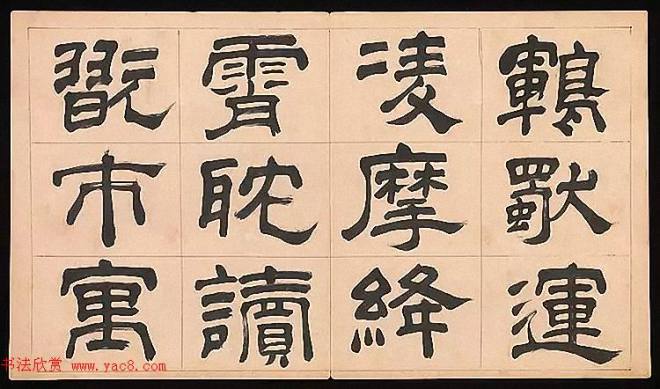 鶤獨運
凌摩絳
霄耽讀
翫市寓
书法欣赏 www.yac8.com